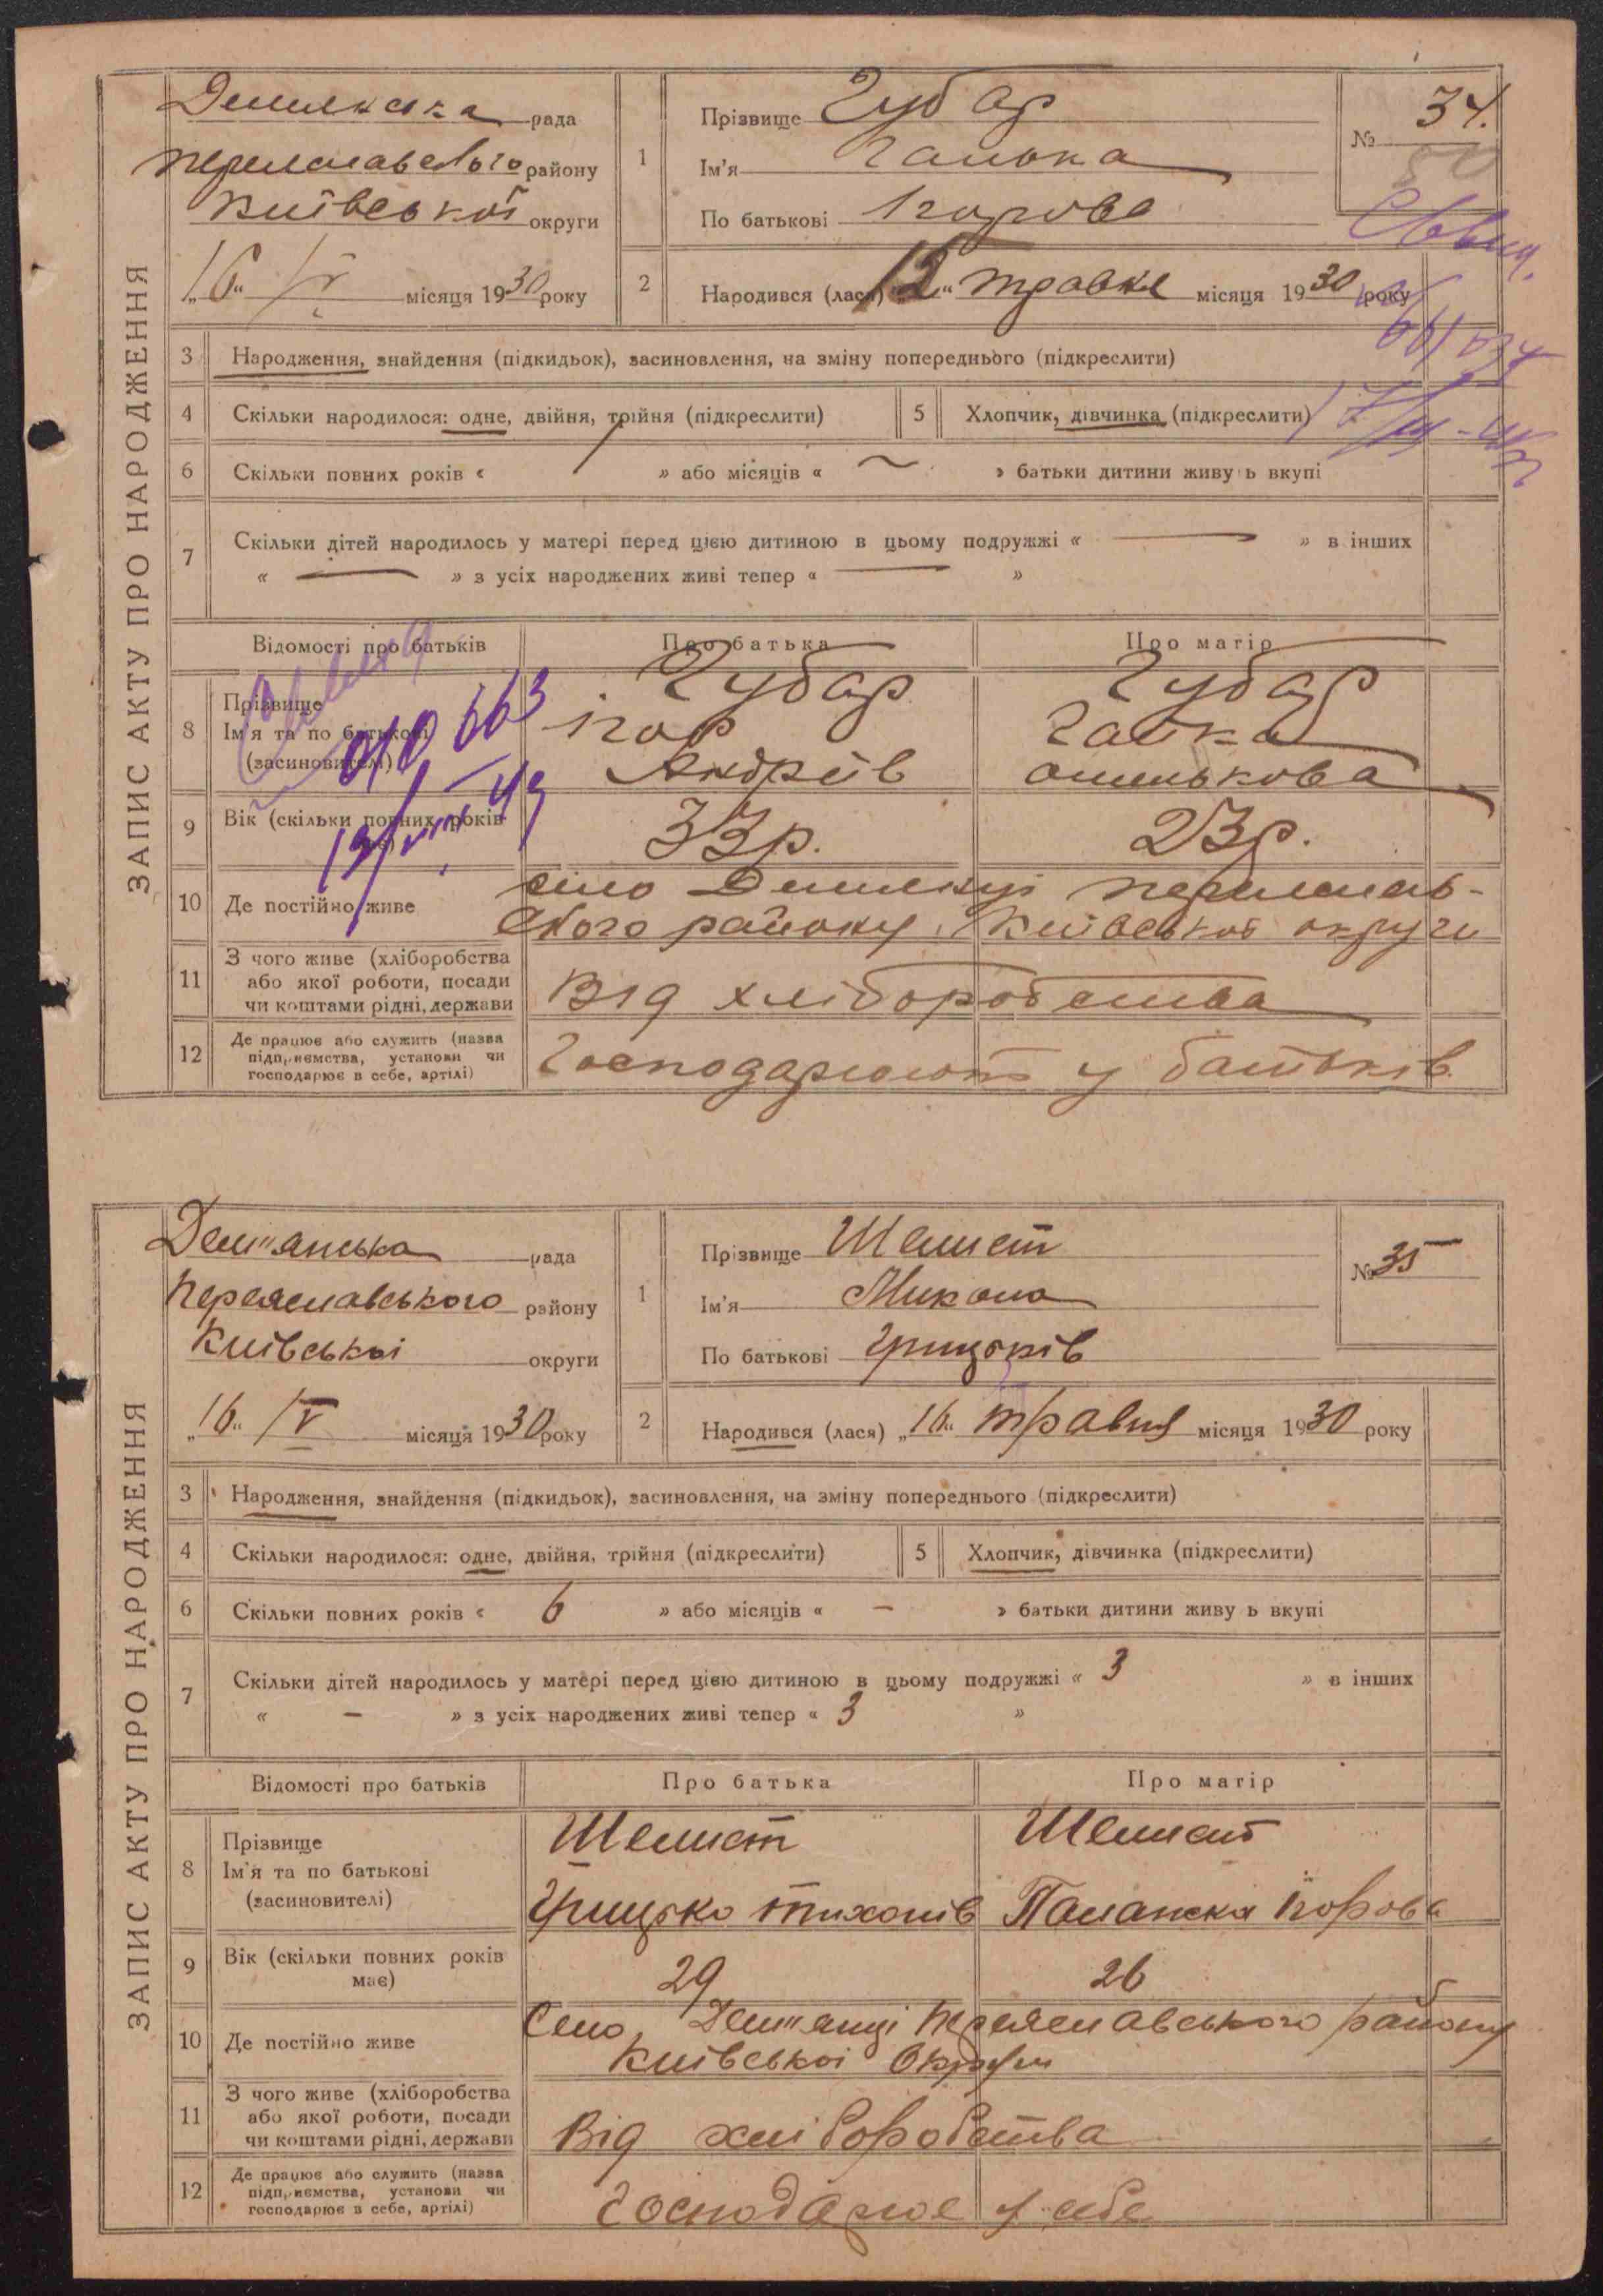 ЗАПИС АКТУ ПРО НАРОДЖЕННЯ
рада
Переяславського району
Київської округи
„16“ V місяця 1930 року
1
Прізвище Губар
Ім'я Галька
По батькові Ігорова
№ 34.
50
2
Народився (лася) „12“ травня місяця 1930 року
3 Народження, знайдення (підкидьок), засиновлення, на зміну попереднього (підкреслити)
4 Скільки народилося: одне, двійня, трійня (підкреслити)
5 Хлопчик, дівчинка (підкреслити)
6 Скільки повних років « 1 » або місяців « ~ » батьки дитини живуть вкупі
7 Скільки дітей народилось у матері перед цією дитиною в цьому подружжі « — » в інших
« — » з усіх народжених живі тепер « — »
Відомості про батьків Про батька Про матір
8 Прізвище
Ім'я та по батькові
(засиновителі)
Губар
Ігор
Андріїв
Губар
Галка
010663
9 Вік (скільки повних років має)
33р. 23р.
10 Де постійно живе
село Переяслав-
ського району, Київської округи
11 З чого живе (хліборобства
або якої роботи, посади
чи коштами рідні, держави
Від хліборобства
12 Де працює або служить (назва
підприємства, установи чи
господарює в себе, артілі)
Господарюють у батьків
ЗАПИС АКТУ ПРО НАРОДЖЕННЯ
Дем"янська рада
Переяславського району
Київської округи
„16“ V місяця 1930 року
1
Прізвище Шемет
Ім'я Микола
По батькові Грицьків
№ 35
2
Народився (лася) „16“ травня місяця 1930 року
3 Народження, знайдення (підкидьок), засиновлення, на зміну попереднього (підкреслити)
4 Скільки народилося: одне, двійня, трійня (підкреслити)
5 Хлопчик, дівчинка (підкреслити)
6 Скільки повних років « 6 » або місяців « — » батьки дитини живуть вкупі
7 Скільки дітей народилось у матері перед цією дитиною в цьому подружжі « 3 » в інших
« — » з усіх народжених живі тепер « 3 »
Відомості про батьків Про батька Про матір
8 Прізвище
Ім'я та по батькові
(засиновителі)
Шемет
Грицько Тихонів
Шемет
Палажка Ігорова
9 Вік (скільки повних років
має)
29 26
10 Де постійно живе
Село, Дем"янці Переяславського району
Київської Округи
11 З чого живе (хліборобства
або якої роботи, посади
чи коштами рідні, держави
Від хліборобства
12 Де працює або служить (назва
підприємства, установи чи
господарює в себе, артілі)
Господарює у себе